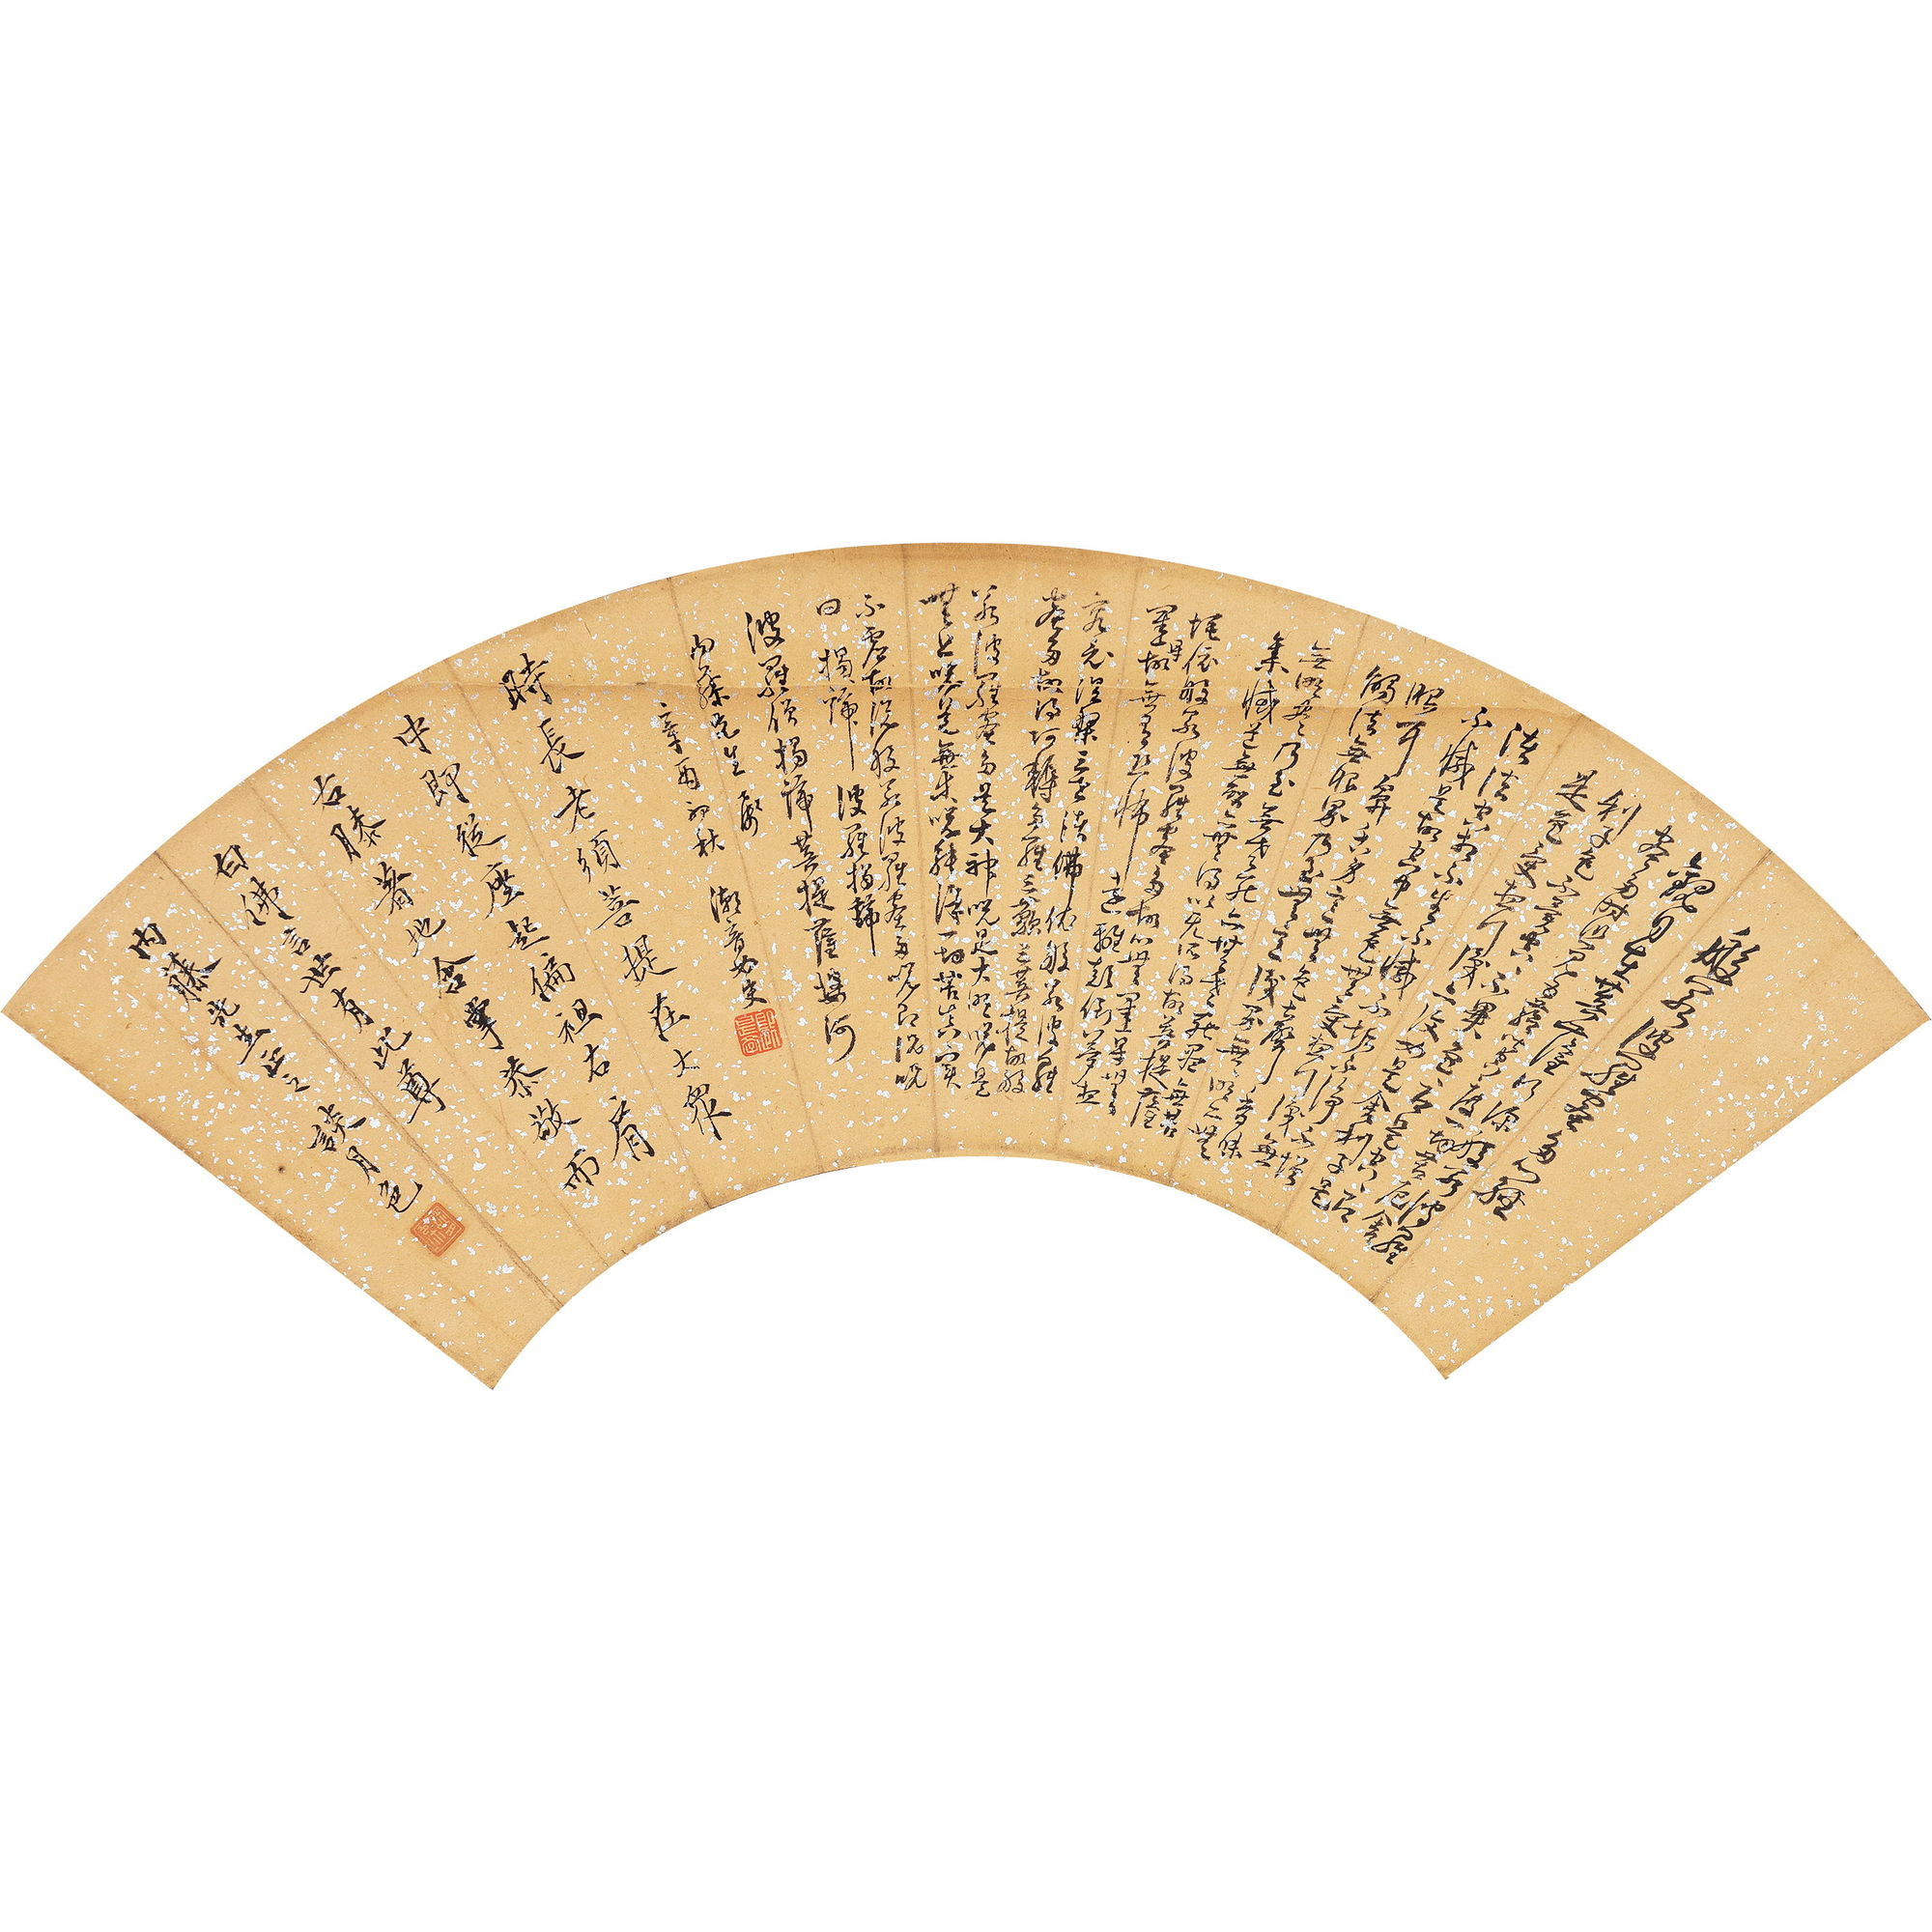 般若波羅蜜多心經
觀自在菩薩行深般若波羅
蜜多時照見五蘊皆空度一切苦厄舍
利子色不異空空不異色色即是空空即
是色受想行識亦復如是舍利子是
諸法空相不生不滅不垢不淨不增
不減是故空中無色無受想行識無
眼耳鼻舌身意無色聲香味
觸法無眼界乃至無意識界無無明亦無
無明盡乃至無老死亦無老死盡無苦
集滅道無智亦無得以無所得故菩提薩
埵依般若波羅蜜多故心無罣礙無
罣礙故無有恐怖遠離顛倒夢想
究竟涅槃三世諸佛依般若波羅
蜜多故得阿耨多羅三藐三菩提故知般
若波羅蜜多是大神咒是大明咒是
無上咒是無等等咒能除一切苦真實
不虛故說般若波羅蜜多咒即說咒
曰揭諦揭諦波羅揭諦
波羅僧揭諦菩提薩婆訶
內藤先生屬
辛酉初秋 潮音女史
時長老須菩提在大眾
中即從座起偏袒右肩
右膝著地合掌恭敬而
白佛言世有此尊
內藤先生正之 談月色